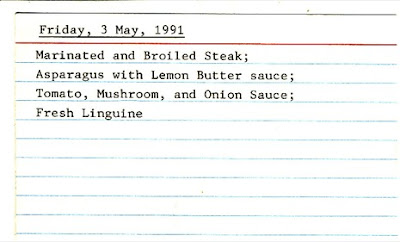 Friday, 3 May, 1991
Marinated and Broiled Steak;
Asparagus with Lemon Butter sauce;
Tomato, Mushroom, and Onion Sauce;
Fresh Linguine